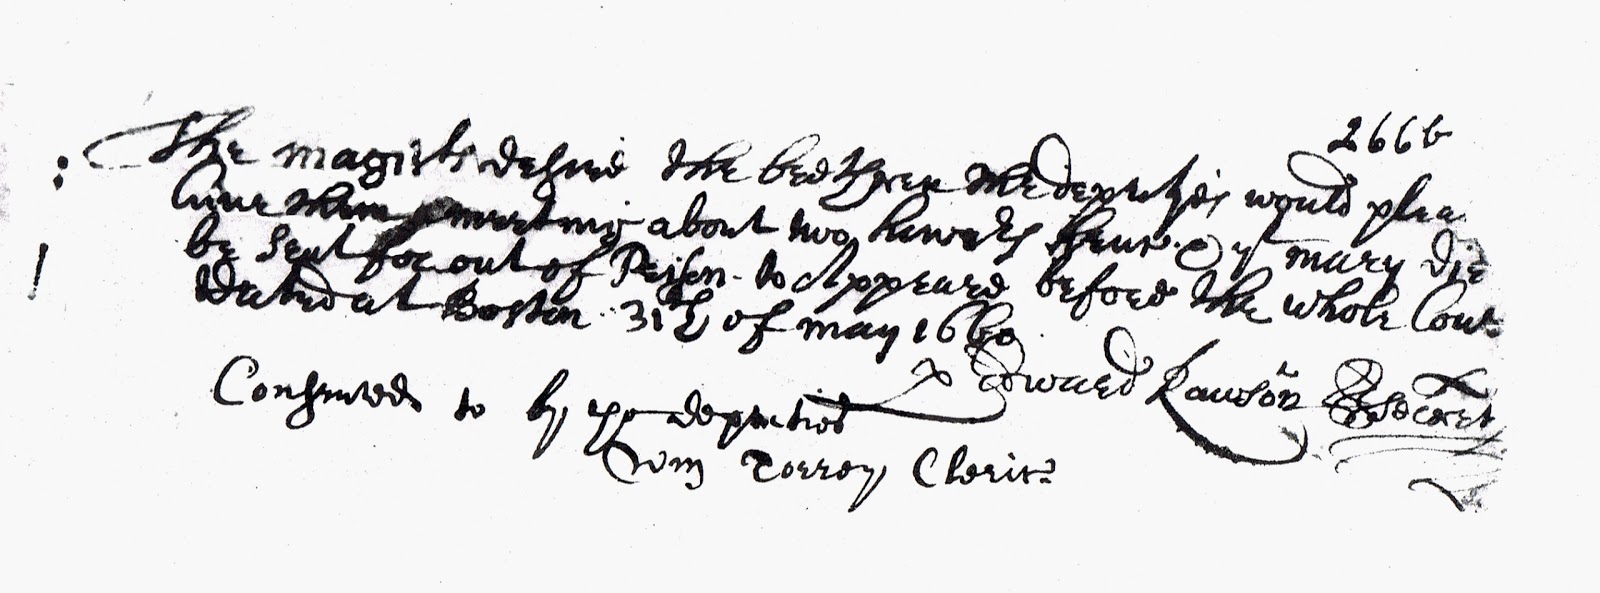 266b
The magists desired the brethren the deputyes would plea
Give them meeting about two howers hence. & yt mary Dye
be sent for out of Prison to Appeare before the whole Cour
dated at Boston 31th of may 1660
p Edward Rawson Secret
Consented to by ye deputies
Wm Torrey Cleric